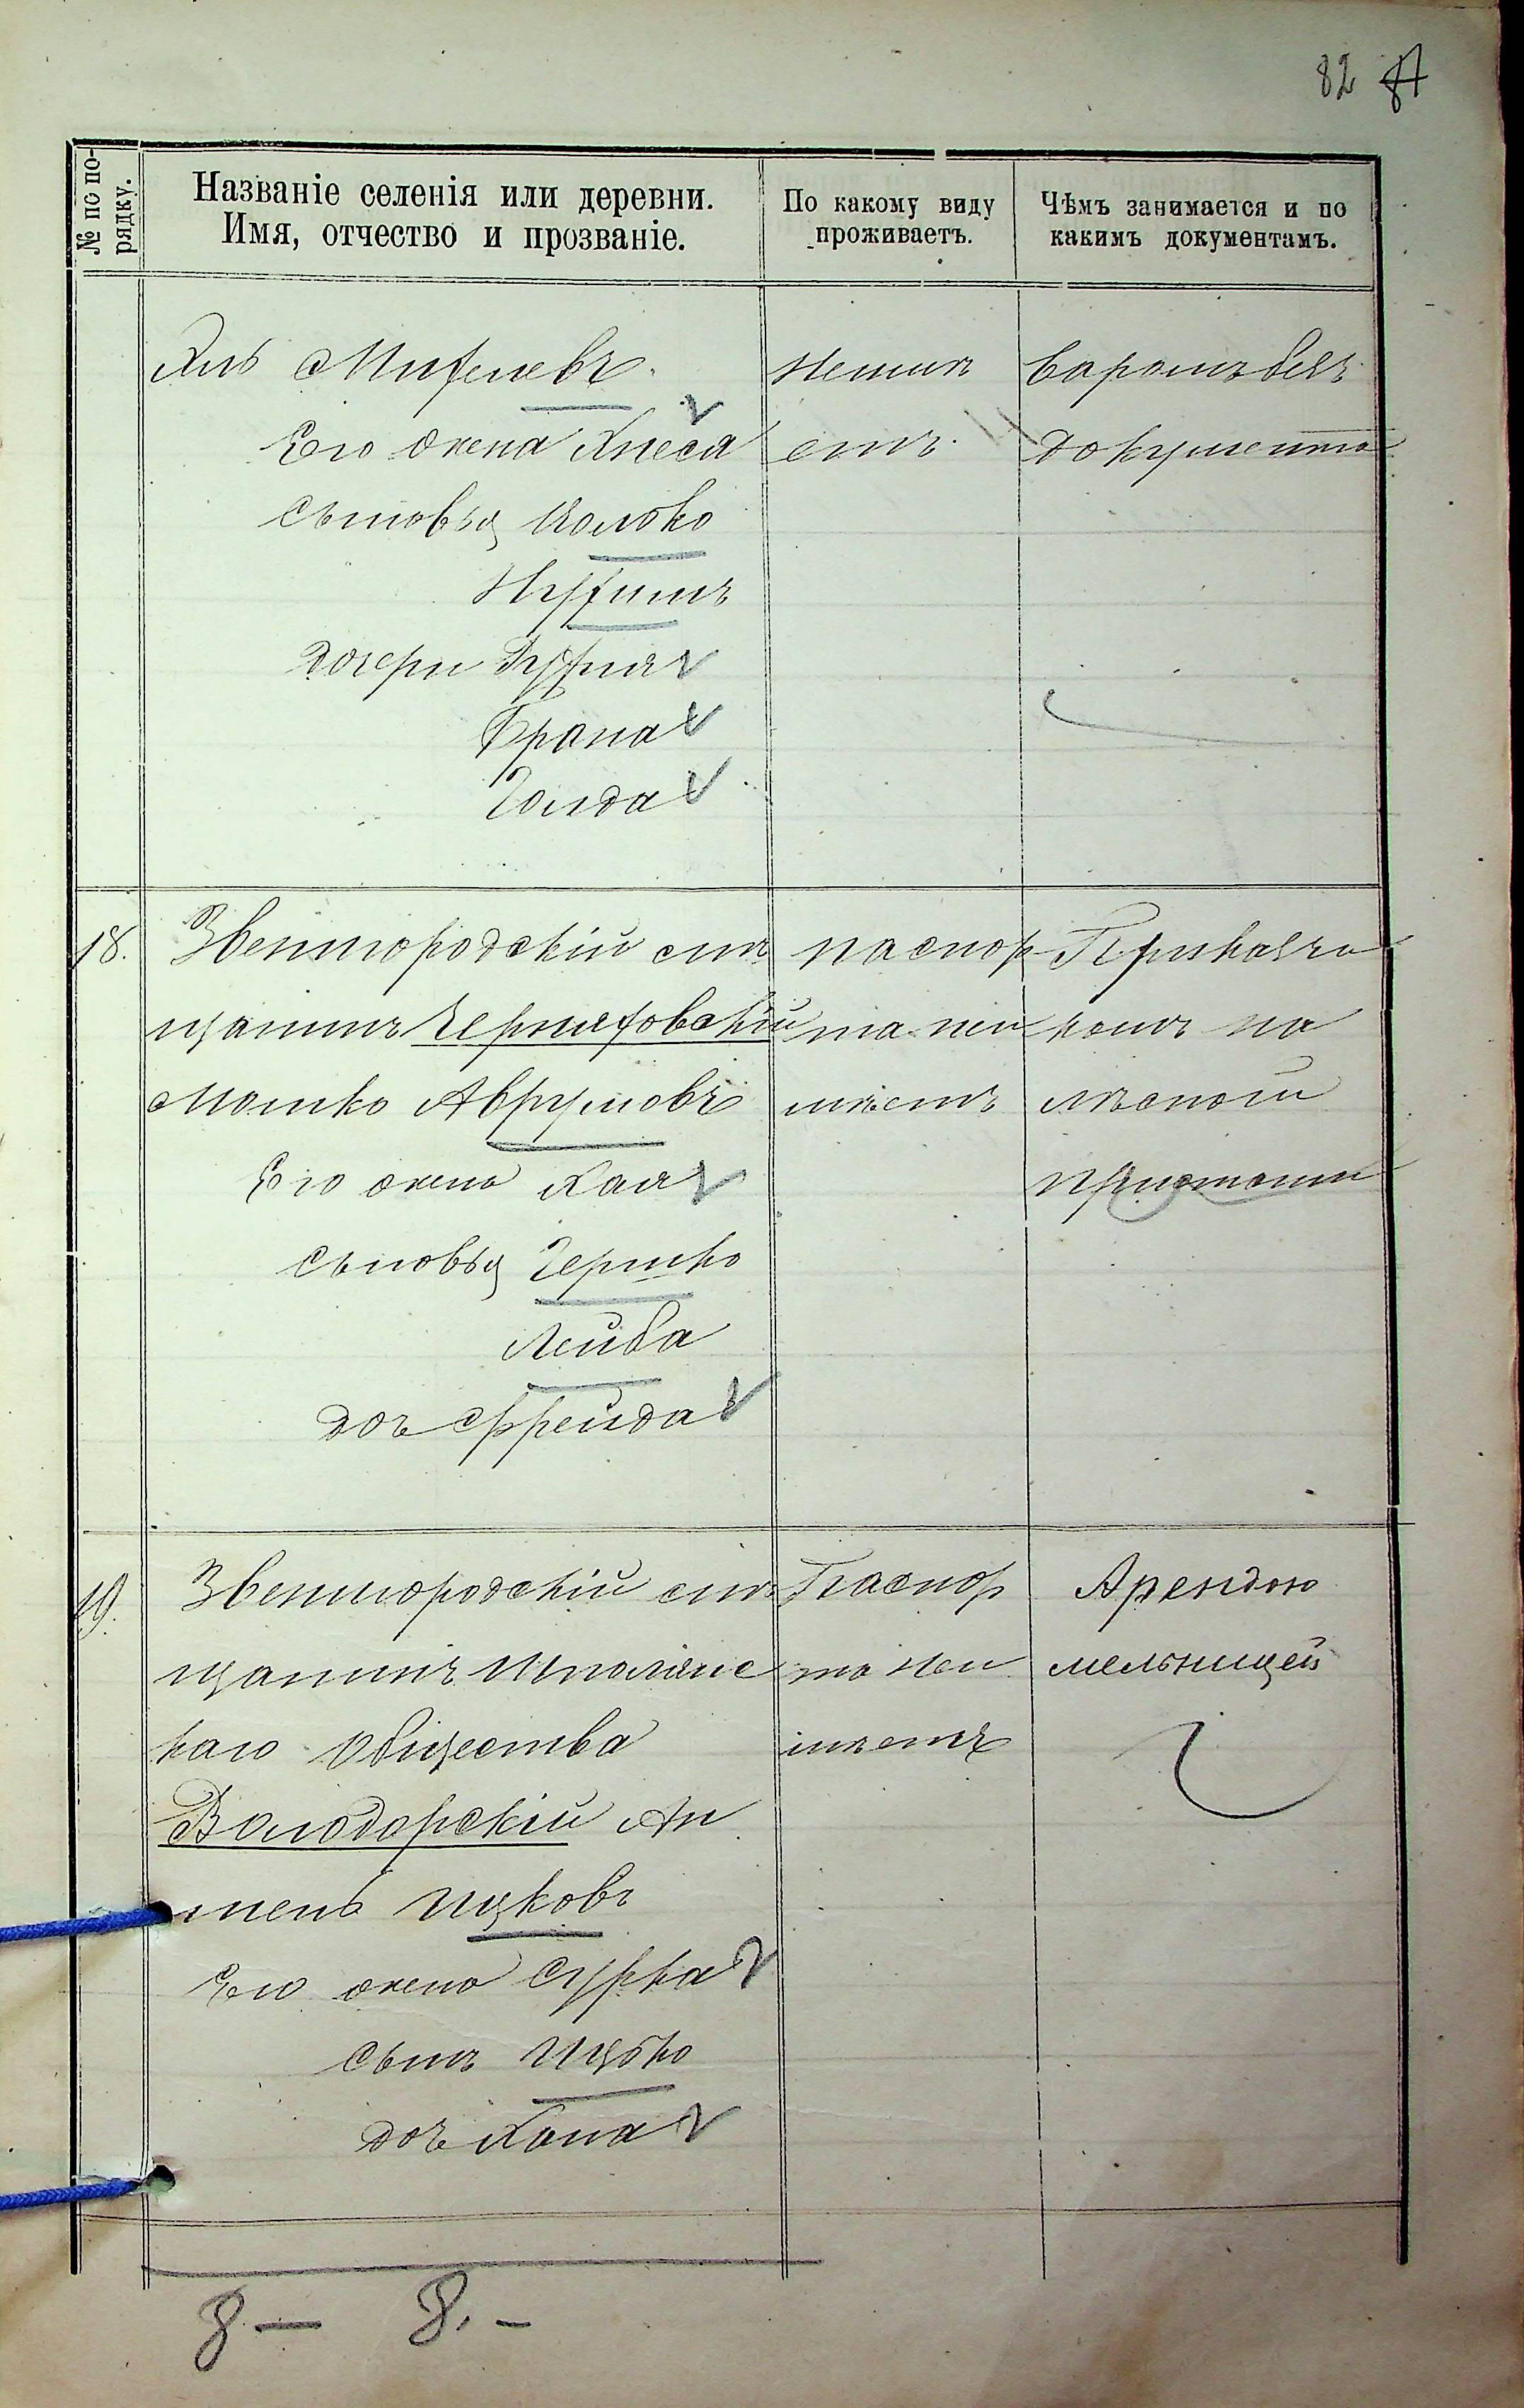 82 81
№ по по-
рядку.
Названіе селенія или деревни.
Имя, отчество и прозваніе.
По какому виду
проживаетъ.
Чѣмъ занимается и по
какимъ документамъ.
Его жена Кнеся
сыновья Іолько
Нухимъ
дочери Рухля
Брана
Голда
Неим
еть
безъ
документа
18.
Звенигородскій мѣ
щанинъ Черняховскій
Мошко Аврумовъ
Его жена Хая
сыновья Гершко
Лейба
доч Фрейда
паспор
та неи
мѣетъ
Приказчи
комъ на
лѣсной
пристани
19.
Звенигородскій мѣ
щанинъ Шполянс
каго общества
Володарскій Ан
шель Ицковъ
Его жена Сурка
сынъ Ицко
доч Хана
Паспор
та Неи
мѣетъ
Арендою
мельницей
8 — 8. —